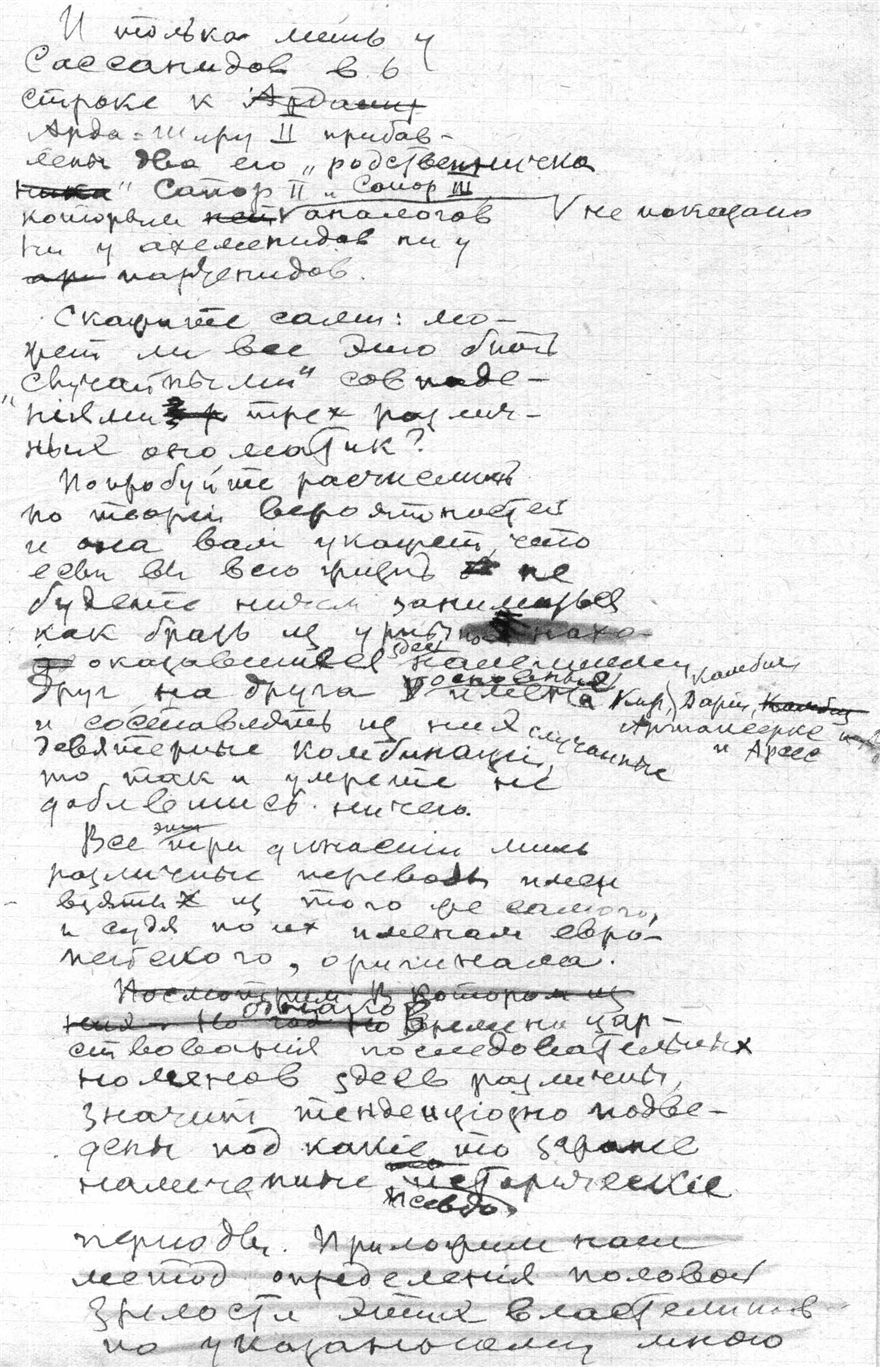 И только лишь у
Сассанидов в 6
строке к Ардашир
Арда-Ширу II прибав-
лены два его „родственничка
ника“ Сапор II и Сапор III
которым нет аналогов не показано
ни у ахеменидов ни у
ар парфенидов.
Скажите сами: мо-
жет ли все это быть
„случайными“ совпаде-
ніями трех различ-
ных ономатик?
Попробуйте расчислить
по теоріи вероятностей
и она вам укажет, что
если вы всю жизнь не
будете ничем заниматься
как брать из урны
оказавшиеся здесь налепленными
друг на друга имена (Кир, Камбиз, Дарій, Камбиз
и составлять из них Артаксеркс и Арсес
девятерные комбинаціи, случайные
то так и умрете не
добившись ничего.
Все эти три династіи лишь
различные переводы имен
взятых из того же самого,
и судя по их именам евро-
пейского, оригинала.
Посмотрим в котором из
них. Но год но Времена цар-
ствованія последовательных
номенов здесь различны,
значит тенденціозно подве-
дены под какіе то заранее
намеченные псевдо исторические
периоды. Приложим наш
метод определенія половой
зрелости этих властелинов
по указанному мною